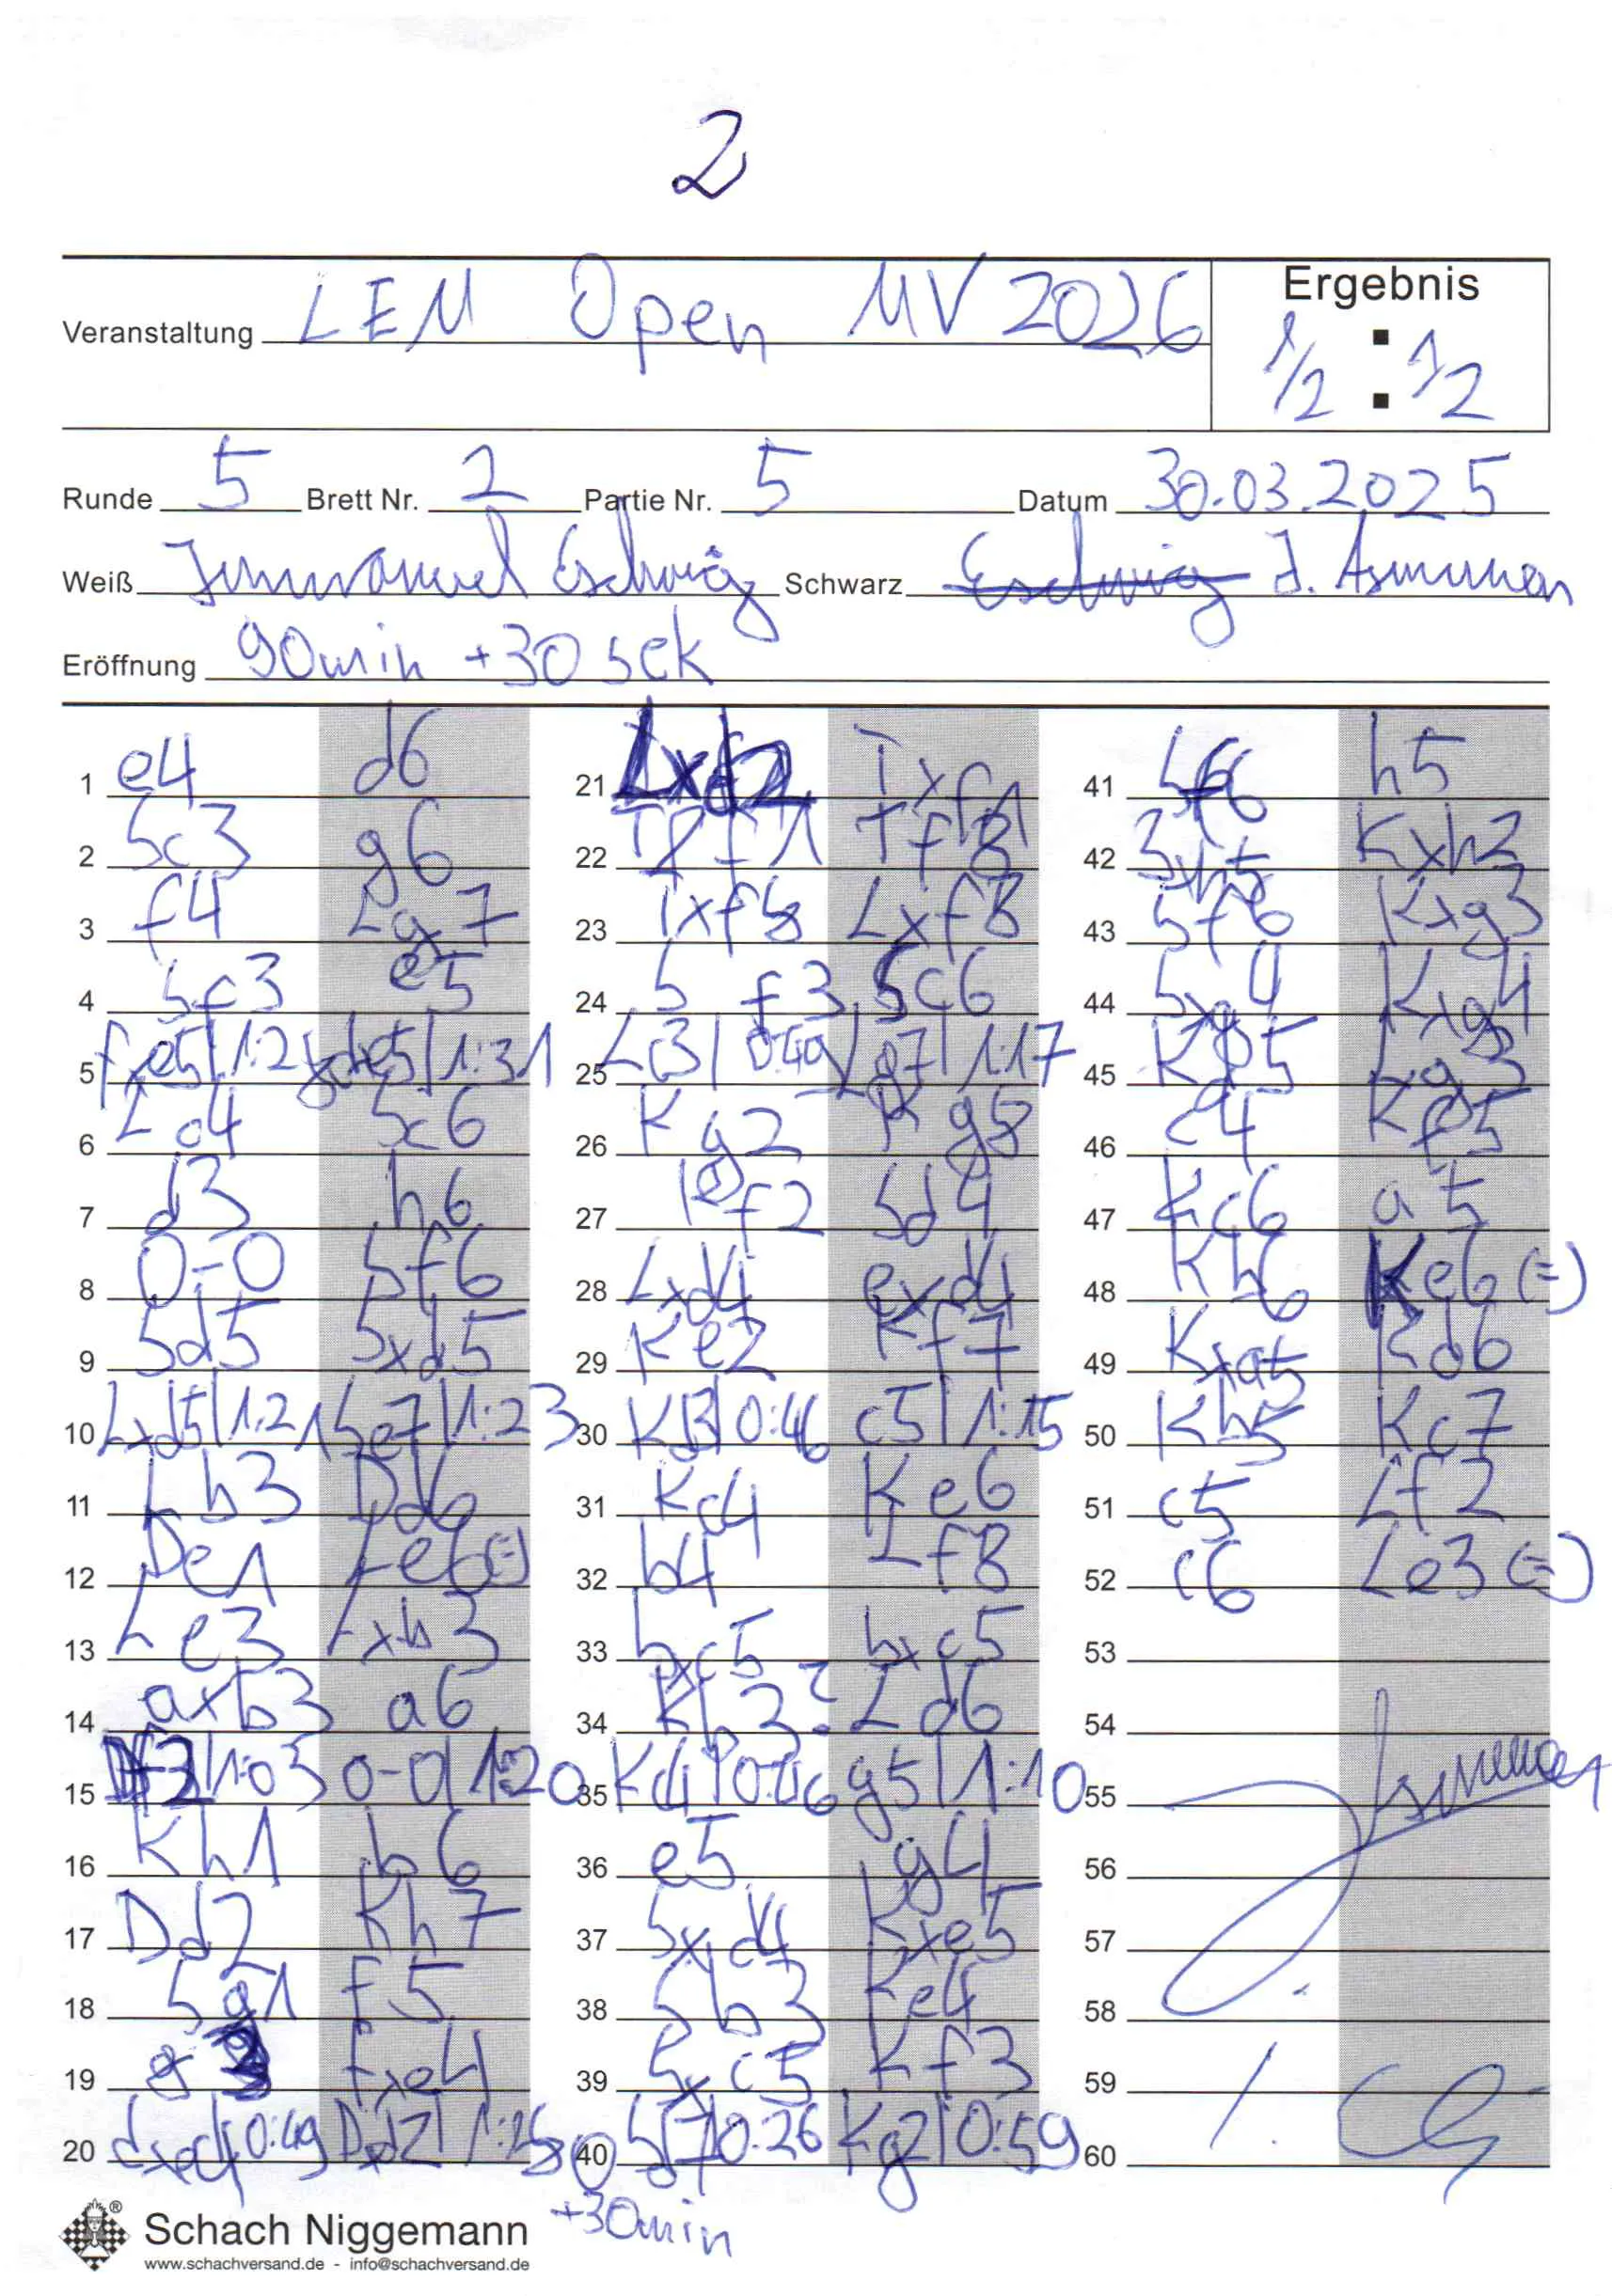 2
Veranstaltung LEM Open MV 2026
Ergebnis
1/2 : 1/2
Runde 5 Brett Nr. 2 Partie Nr. 5 Datum 30.03.2025
Weiß Immanuel Eschwig Schwarz Eschwig J. Asmussen
Eröffnung 90min +30 sek
1 e4 d6
2 Sc3 g6
3 f4 Lg7
4 Sf3 e5
5 fxe5 | 1:28 dxe5 | 1:31
6 Lc4 Sc6
7 d3 h6
8 0-0 Sf6
9 Sd5 Sxd5
10 Lxd5 | 1:21 Se7 | 1:23
11 Lb3 Dd6
12 De1 Le6 (=)
13 Le3 Lxb3
14 axb3 a6
15 Df2 | 1:03 0-0 | 1:20
16 Kh1 b6
17 Dd2 Kh7
18 Sg1 f5
19 g3 fxe4
20 dxe4 | 0:49 Dxd2 | 1:26
21 Lxd2 Txf1
22 Txf1 Tf8
23 Txf8 Lxf8
24 Sf3 Sc6
25 Lc3 | 0:49 Lg7 | 1:17
26 Kg2 Kg8
27 Kf2 Sd4
28 Lxd4 exd4
29 Ke2 Kf7
30 Kd3 | 0:46 c5 | 1:15
31 Kc4 Ke6
32 b4 Lf8
33 bxc5 bxc5
34 Kb3? Ld6
35 Kc4 | 0:46 g5 | 1:10
36 e5 g4
37 Sxd4 Kxe5
38 Sb3 Ke4
39 Sxc5 Kf3
40 Sd7 | 0:26 Kg2 | 0:59
+30min
41 Sf6 h5
42 Sxh5 Kxh2
43 Sf6 Kxg3
44 Sxg4 Kxg4
45 Kb5 Lg3
46 c4 Kf5
47 Kc6 a5
48 Kb6 Ke6 (=)
49 Kxa5 Kd6
50 Kb5 Kc7
51 c5 Lf2
52 c6 Le3 (=)
53
54
55
56
57
58
59
60
J. Asmussen
I. Es
Schach Niggemann
www.schachversand.de - info@schachversand.de